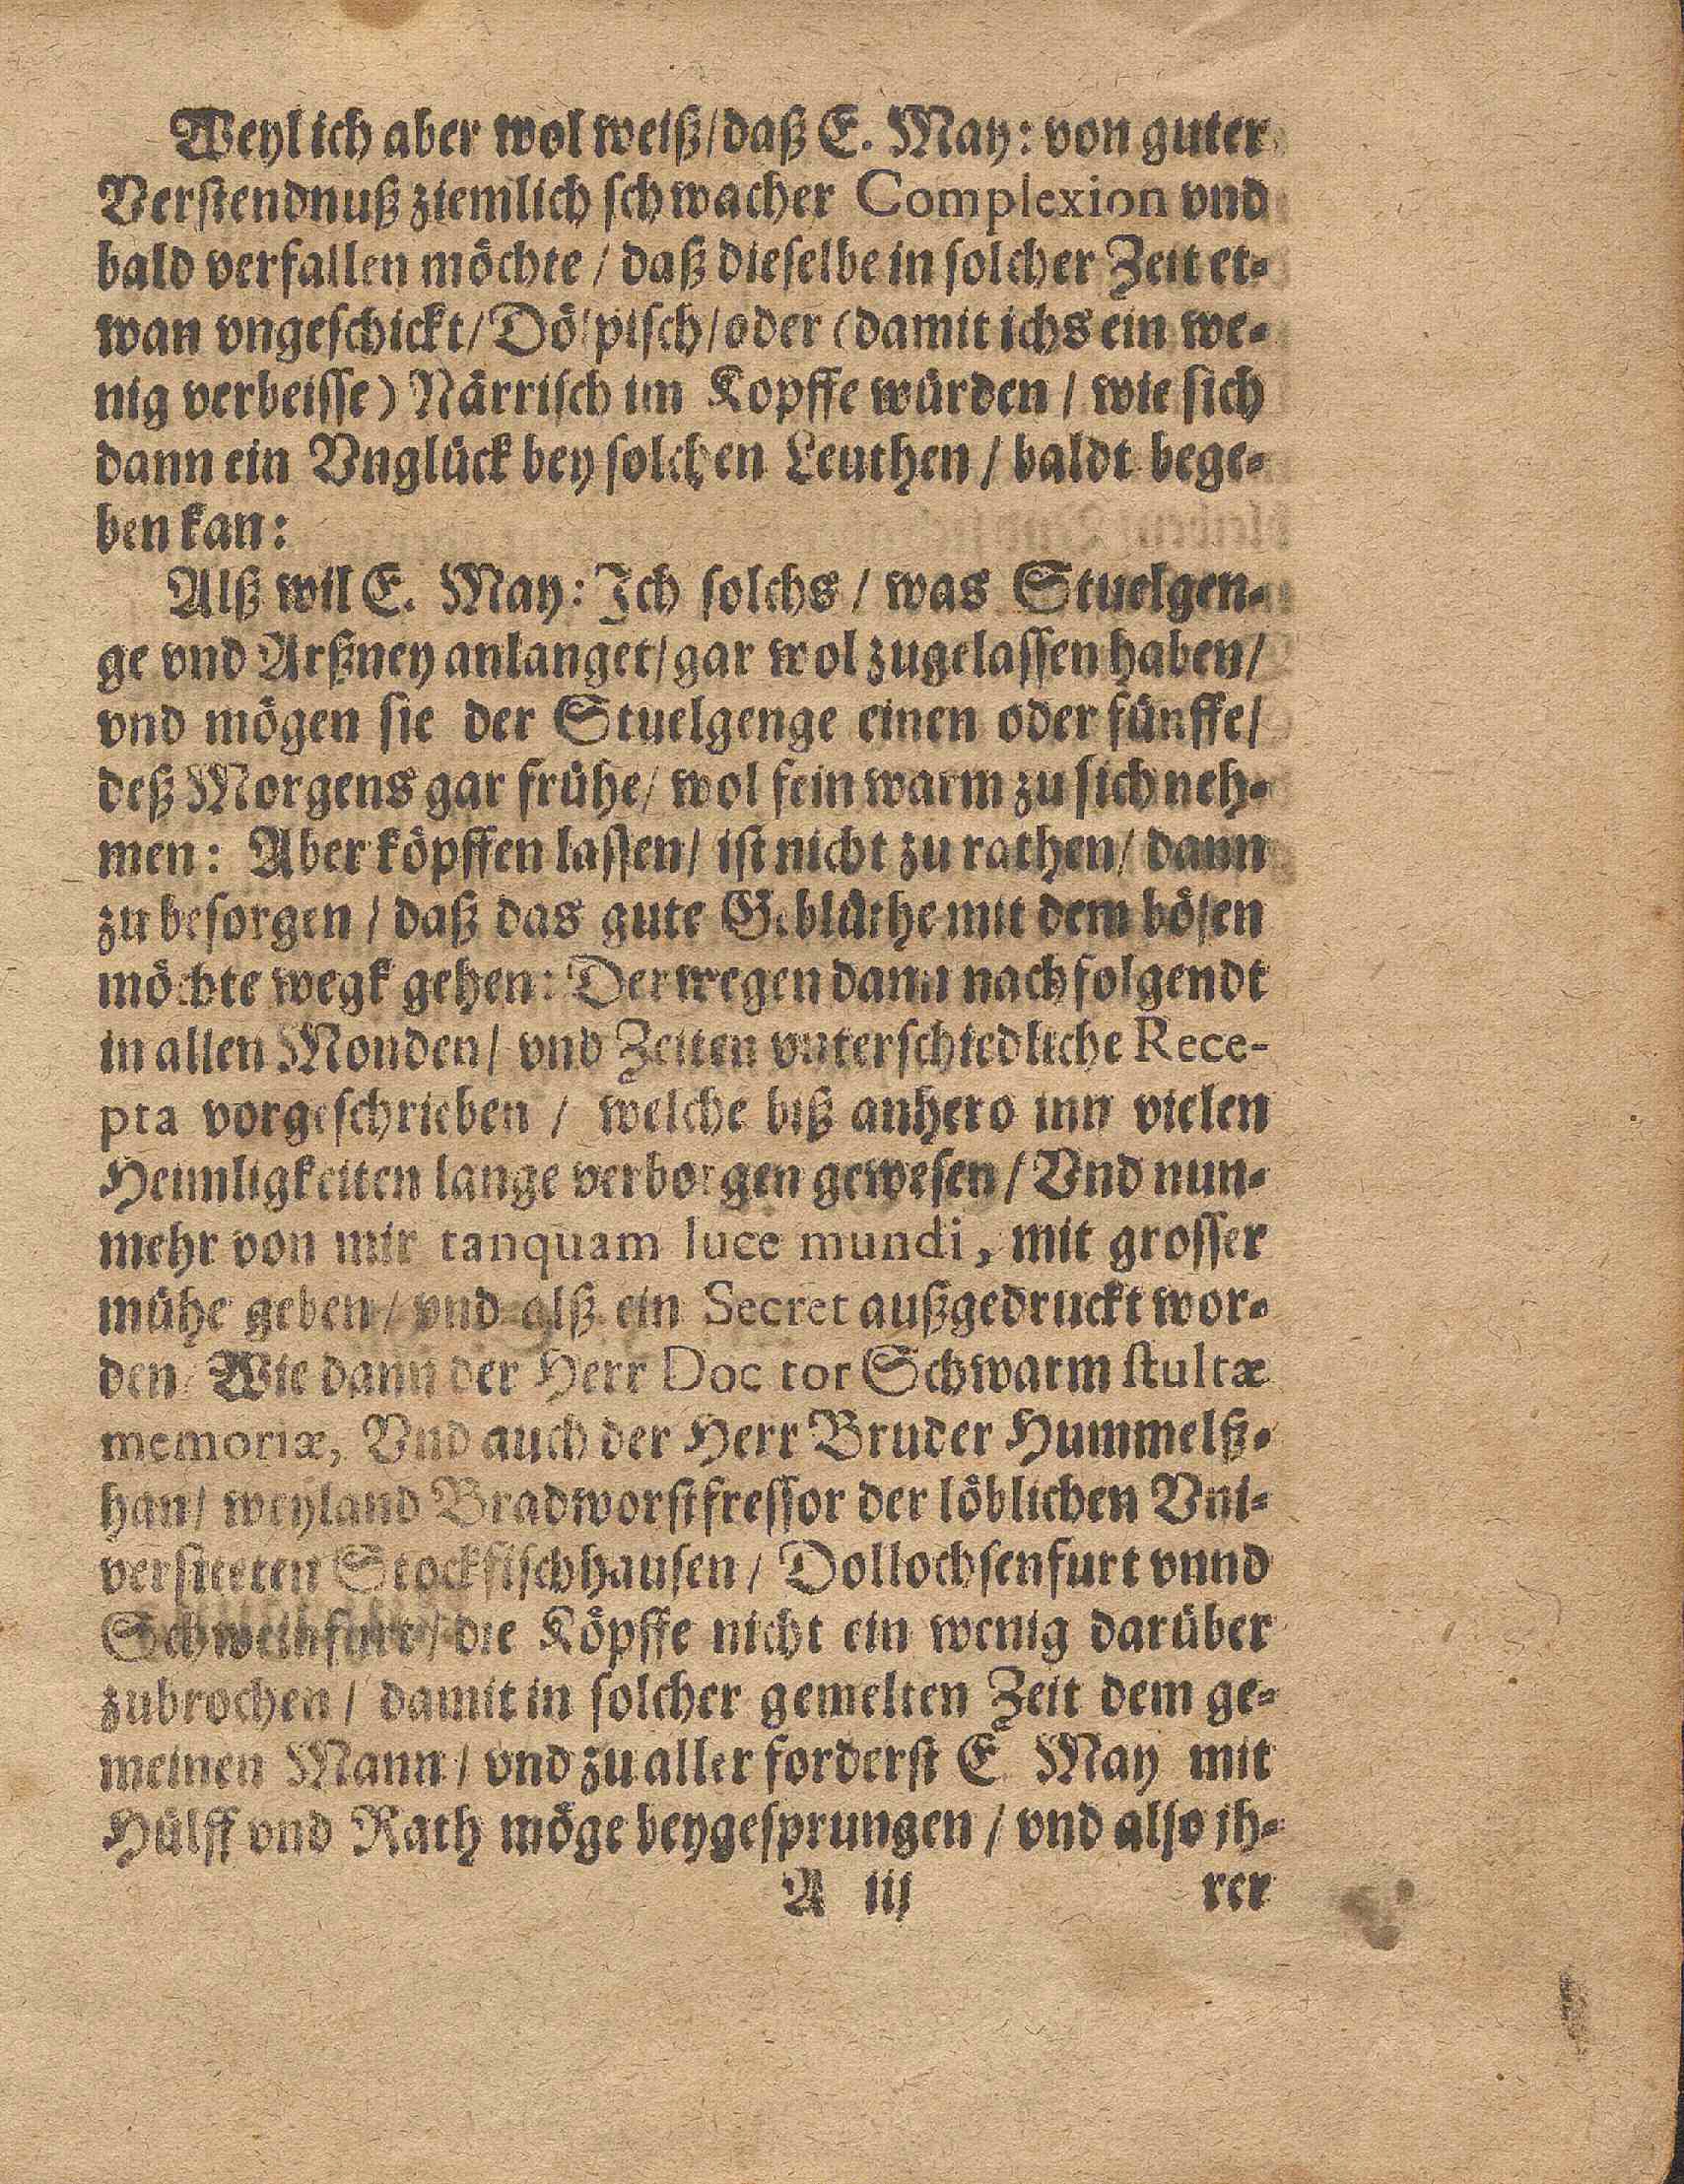 Weyl ich aber wol weiß/daß E. May: von guter
Verſtendnuß ziemlich ſchwacher Complexion vnd
bald verfallen möchte / daß dieſelbe in ſolcher Zeit et⸗
wan vngeſchickt/Dölpiſch/oder (damit ichs ein we⸗
nig verbeiſſe) Närriſch im Kopffe würden / wie ſich
dann ein Vnglück bey ſolchen Leuthen / baldt bege⸗
ben kan:
Alß wil E. May: Ich ſolchs / was Stuelgen⸗
ge vnd Arßney anlanget/gar wol zugelaſſen haben/
vnd mögen ſie der Stuelgenge einen oder fünffe/
deß Morgens gar frühe/ wol fein warm zu ſich neh⸗
men: Aber köpffen laſſen/ iſt nicht zu rathen/ dann
zu beſorgen / daß das gute Geblüthe mit dem böſen
möchte wegk gehen: Derwegen dann nachfolgendt
in allen Monden/ vnd Zeiten vnterſchiedliche Rece-
pta vorgeſchrieben / welche biß anhero inn vielen
Heimligkeiten lange verborgen geweſen / Vnd nun⸗
mehr von mir tanquam luce mundi, mit groſſer
mühe geben / vnd alß ein Secret außgedruckt wor⸗
den/ Wie dann der Herr Doctor Schwarm ſtultæ
memoriæ, Vnd auch der Herr Bruder Hummelß⸗
han/ weyland Bradworſtfreſſor der löblichen Vni⸗
verſiteten Stockfiſchhauſen / Dollochſenfurt vnnd
Schweinfurt / die Köpffe nicht ein wenig darüber
zubrochen / damit in ſolcher gemelten Zeit dem ge⸗
meinen Mann / vnd zu aller forderſt E May mit
Hülff vnd Rath möge beygeſprungen / vnd alſo jh⸗
A iij rer